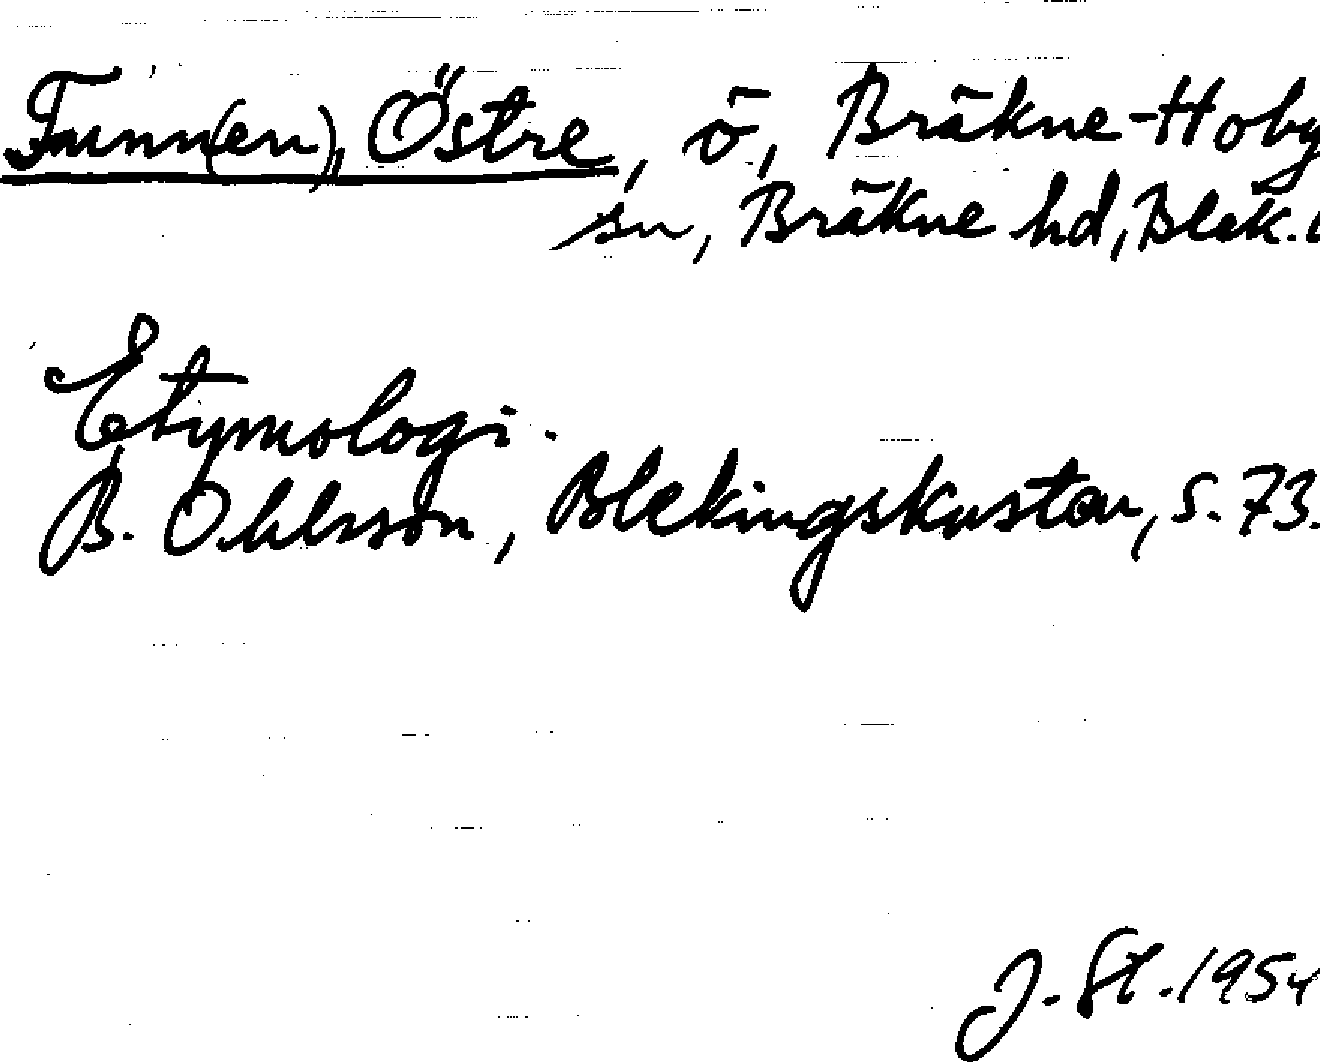 Funn(en), Östre, ö, Bräkne-Hoby
sn, Bräkne hd, Blek. l
Etymologi.
B. Ohlsson, Blekingskusten, s. 73.
J. St. 1954